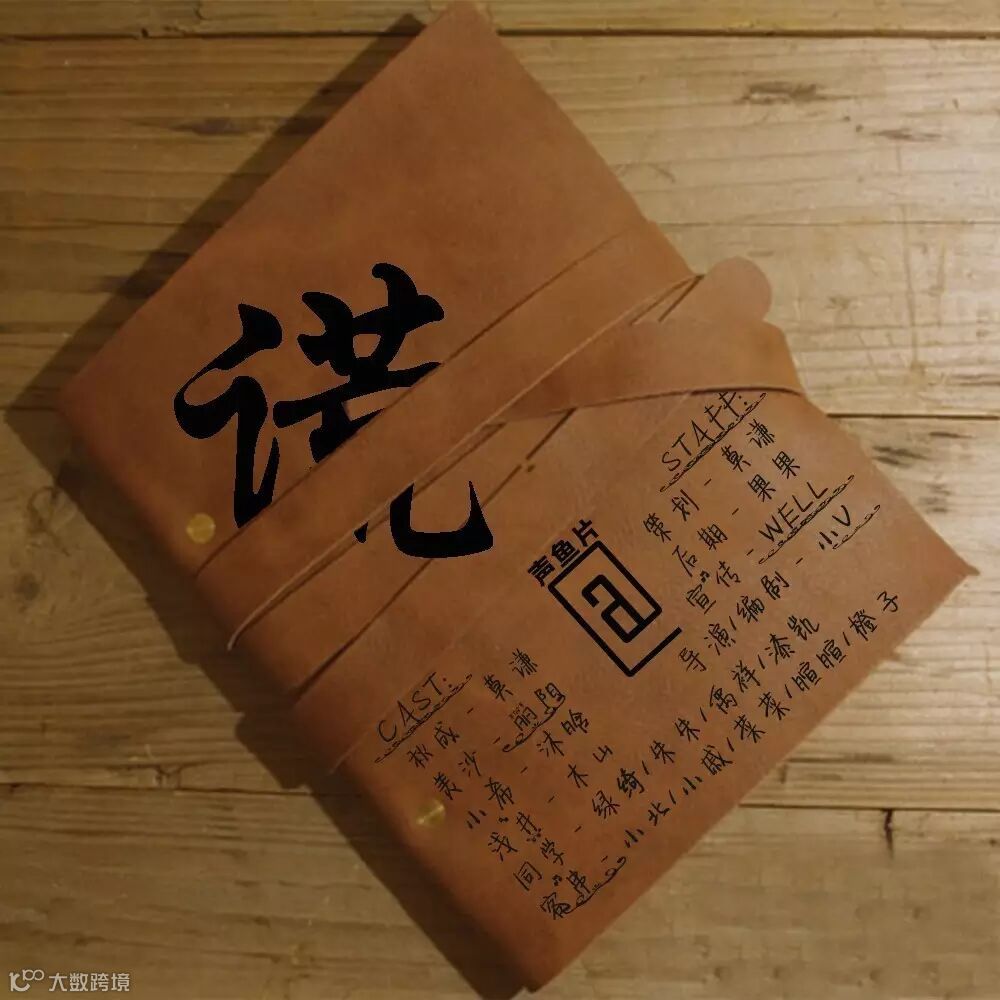 谎
STAFF:
策划 - 莫谦
后期 - 果果
宣传 - WELL
导演/编剧 - 小V
声鱼片
a
CAST:
秋成 - 莫谦
美沙 - 丽阳
小希 - 沐晗
浅井 - 木山
同学 - 绿绮/朱朱/儒祥/漆凯
客串 - 小北/小戚/菜菜/暄暄/橙子
大数跨境